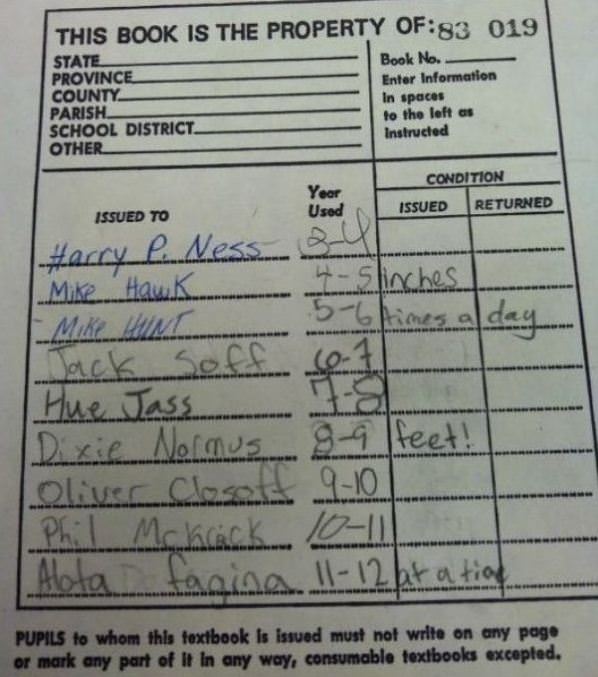 THIS BOOK IS THE PROPERTY OF: 83 019
STATE
PROVINCE
COUNTY
PARISH
SCHOOL DISTRICT
OTHER
Book No.
Enter Information
in spaces
to the left as
instructed
ISSUED TO
Year
Used
CONDITION
ISSUED RETURNED
Harry P. Ness 3-4
Mike Hawk 4-5 inches
Mike HUNT 5-6 times a day
Jack Soff 6-7
Hue Jass 7-8
Dixie Normus 8-9 feet!
Oliver Closoff 9-10
Phil McKrack 10-11
Alota fagina 11-12 at a time
PUPILS to whom this textbook is issued must not write on any page
or mark any part of it in any way, consumable textbooks excepted.